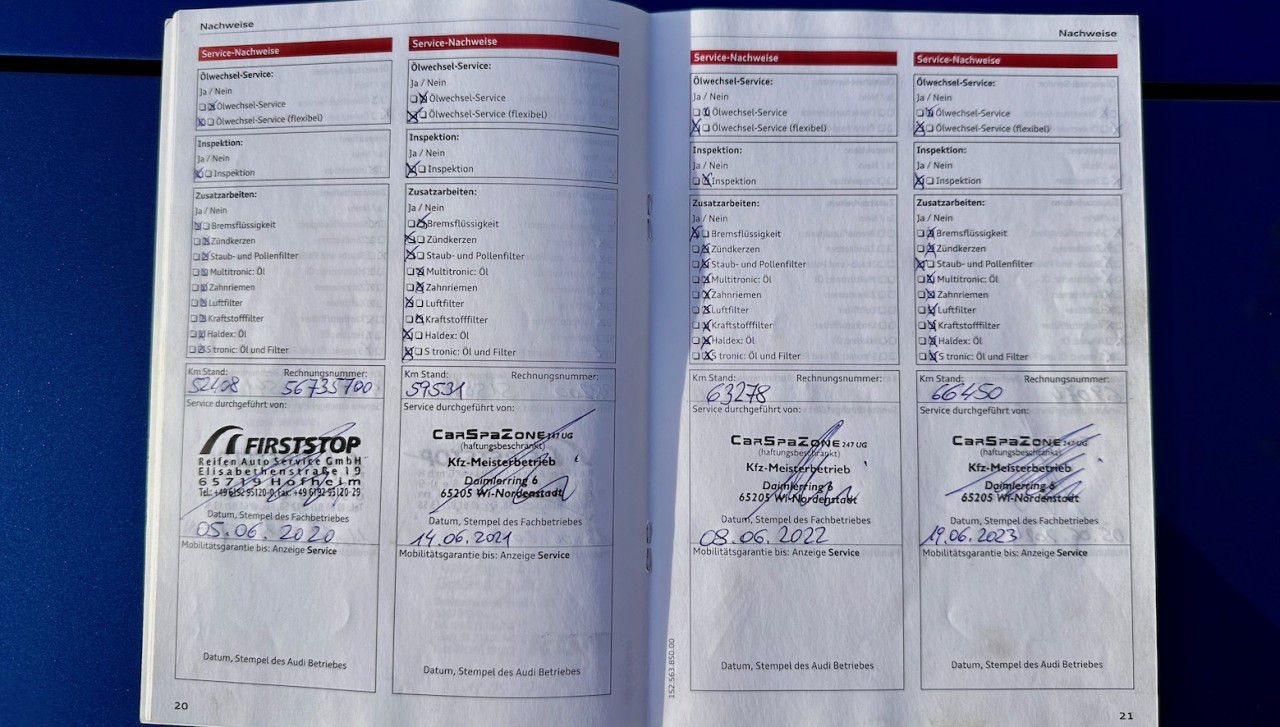 Nachweise
Service-Nachweise
Ölwechsel-Service:
Ja / Nein
Ölwechsel-Service
Ölwechsel-Service (flexibel)
Inspektion:
Ja / Nein
Inspektion
Zusatzarbeiten:
Ja / Nein
Bremsflüssigkeit
Zündkerzen
Staub- und Pollenfilter
Multitronic: Öl
Zahnriemen
Luftfilter
Kraftstofffilter
Haldex: Öl
S tronic: Öl und Filter
Km Stand: Rechnungsnummer:
52408 56735700
Service durchgeführt von:
FIRSTSTOP
Reifen Auto Service GmbH
Elisabethenstraße 19
65719 Hofheim
Tel.: +49 6192 95120-0, Fax: +49 6192 95120-29
Datum, Stempel des Fachbetriebes
05.06.2020
Mobilitätsgarantie bis: Anzeige Service
Datum, Stempel des Audi Betriebes
20
Service-Nachweise
Ölwechsel-Service:
Ja / Nein
Ölwechsel-Service
Ölwechsel-Service (flexibel)
Inspektion:
Ja / Nein
Inspektion
Zusatzarbeiten:
Ja / Nein
Bremsflüssigkeit
Zündkerzen
Staub- und Pollenfilter
Multitronic: Öl
Zahnriemen
Luftfilter
Kraftstofffilter
Haldex: Öl
S tronic: Öl und Filter
Km Stand: Rechnungsnummer:
59531
Service durchgeführt von:
CarSpaZone 247 UG
(haftungsbeschränkt)
Kfz-Meisterbetrieb
Daimlerring 6
65205 Wi-Nordenstadt
Datum, Stempel des Fachbetriebes
14.06.2021
Mobilitätsgarantie bis: Anzeige Service
Datum, Stempel des Audi Betriebes
Nachweise
Service-Nachweise
Ölwechsel-Service:
Ja / Nein
Ölwechsel-Service
Ölwechsel-Service (flexibel)
Inspektion:
Ja / Nein
Inspektion
Zusatzarbeiten:
Ja / Nein
Bremsflüssigkeit
Zündkerzen
Staub- und Pollenfilter
Multitronic: Öl
Zahnriemen
Luftfilter
Kraftstofffilter
Haldex: Öl
S tronic: Öl und Filter
Km Stand: Rechnungsnummer:
63278
Service durchgeführt von:
CarSpaZone 247 UG
(haftungsbeschränkt)
Kfz-Meisterbetrieb
Daimlerring 6
65205 Wi-Nordenstadt
Datum, Stempel des Fachbetriebes
08.06.2022
Mobilitätsgarantie bis: Anzeige Service
Datum, Stempel des Audi Betriebes
152.563.850.00
Service-Nachweise
Ölwechsel-Service:
Ja / Nein
Ölwechsel-Service
Ölwechsel-Service (flexibel)
Inspektion:
Ja / Nein
Inspektion
Zusatzarbeiten:
Ja / Nein
Bremsflüssigkeit
Zündkerzen
Staub- und Pollenfilter
Multitronic: Öl
Zahnriemen
Luftfilter
Kraftstofffilter
Haldex: Öl
S tronic: Öl und Filter
Km Stand: Rechnungsnummer:
66450
Service durchgeführt von:
CarSpaZone 247 UG
(haftungsbeschränkt)
Kfz-Meisterbetrieb
Daimlerring 6
65205 Wi-Nordenstadt
Datum, Stempel des Fachbetriebes
19.06.2023
Mobilitätsgarantie bis: Anzeige Service
Datum, Stempel des Audi Betriebes
21